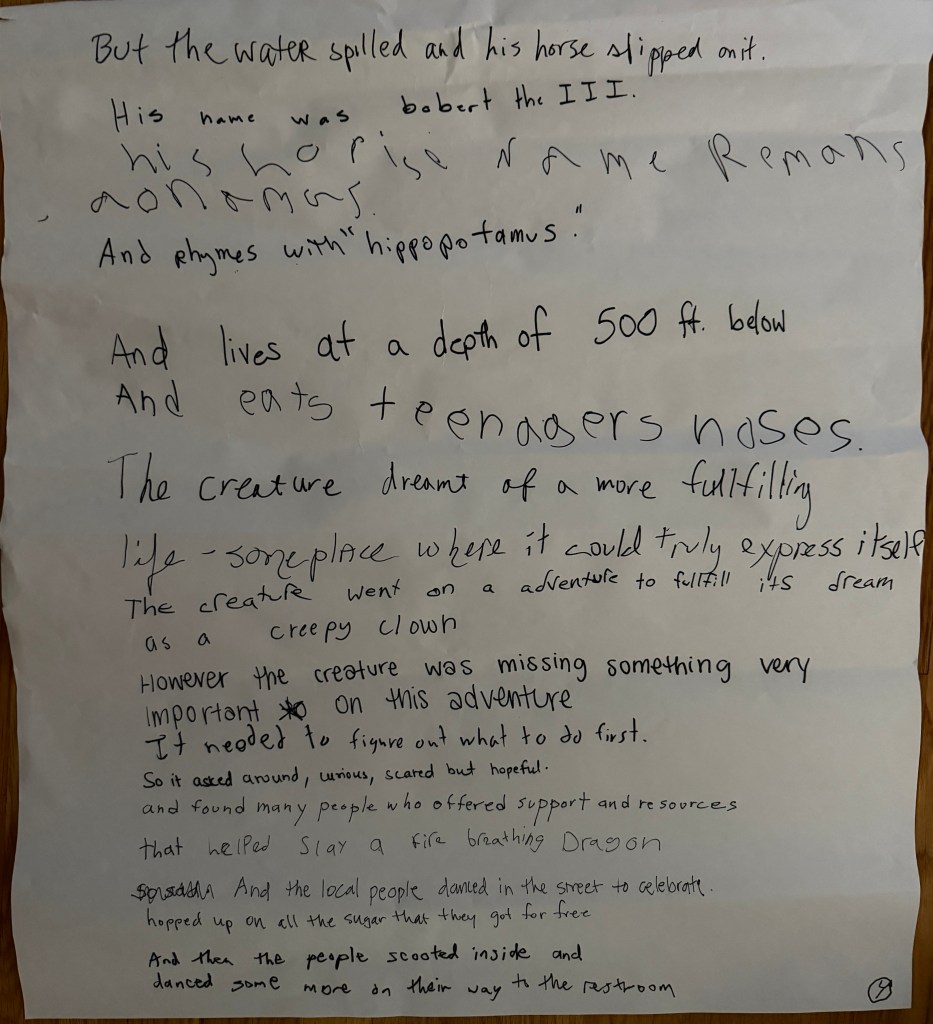 But the water spilled and his horse slipped on it.
His name was bobert the III.
his horise Name Remans
aonamas.
And rhymes with "hippopotamus."
And lives at a depth of 500 ft. below
And eats teenagers noses.
The creature dreamt of a more fullfilling
life - someplace where it could truly express itself
The creature went on a adventure to fullfill its dream
as a creepy clown
However the creature was missing something very
important on this adventure
It needed to figure out what to do first.
So it asked around, curious, scared but hopeful.
and found many people who offered support and resources
that helped Slay a fire breathing Dragon
And the local people danced in the street to celebrate.
hopped up on all the sugar that they got for free
And then the people scooted inside and
danced some more on their way to the restroom
9